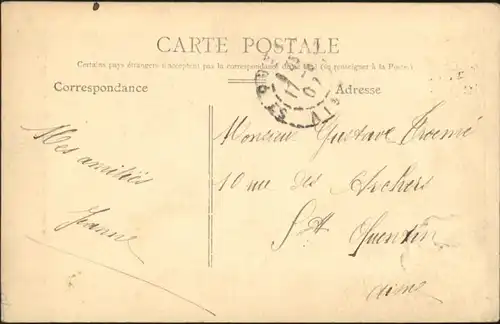 CARTE POSTALE
Certains pays étrangers n'acceptent pas la correspondance (se renseigner à la Poste)
Correspondance
Adresse
Mes amitiés
Jeanne
Monsieur Gustave
10 rue des Archers
St Quentin
Aisne